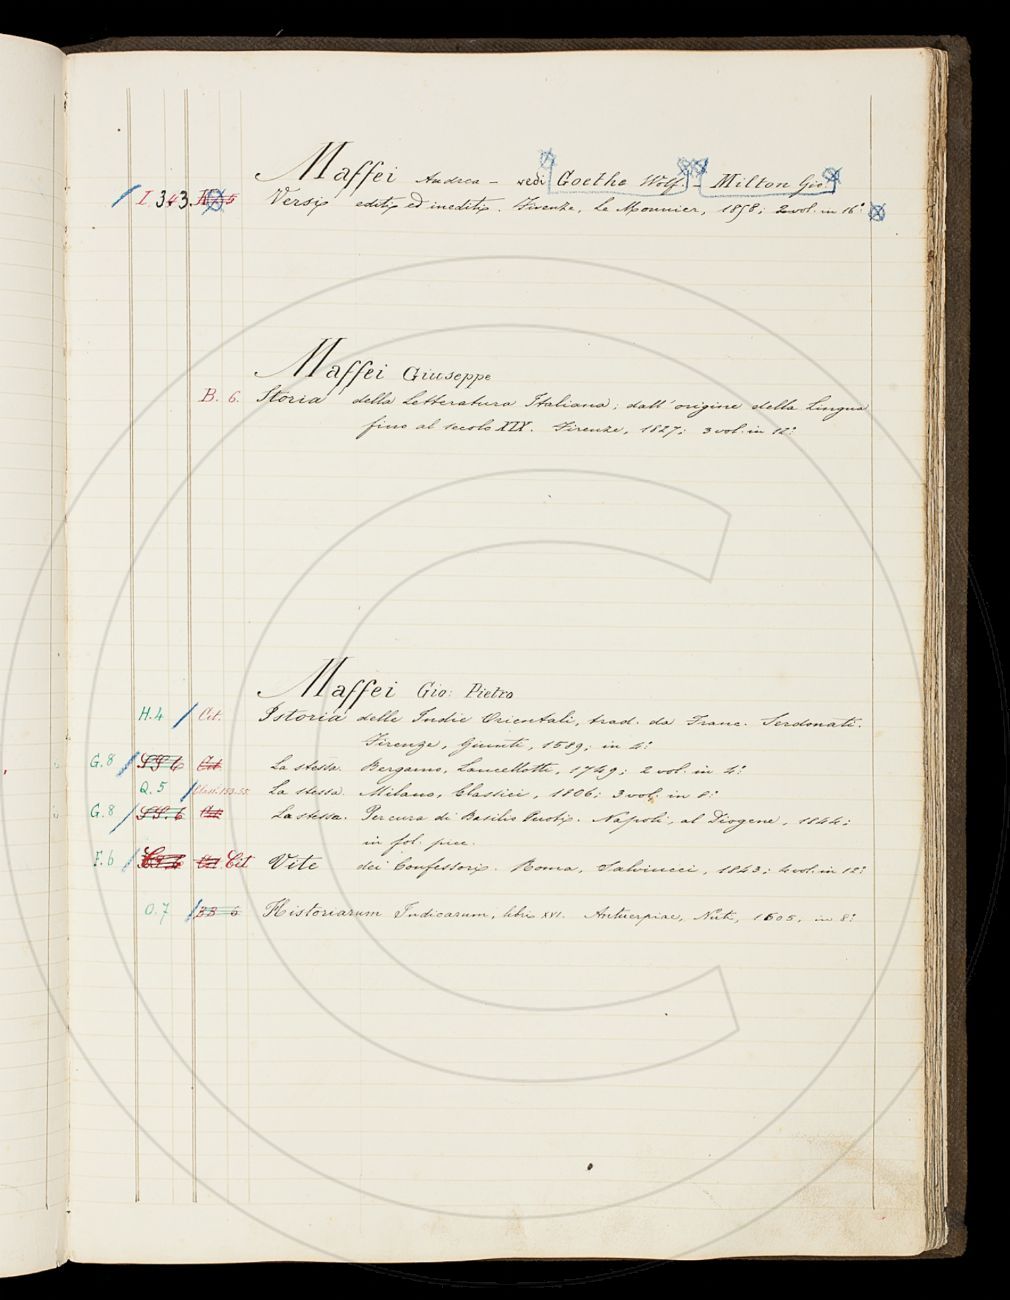 Maffei Andrea – vedi Goethe Wolf. – Milton Gio.
I 343. Versi editi ed inediti. Firenze, Le Monnier, 1858; 2 vol. in 16.°
Maffei Giuseppe
B. 6. Storia della Letteratura Italiana; dall'origine della Lingua
fino al secolo XIX. Firenze, 1827; 3 vol. in 12.°
Maffei Gio: Pietro
H. 4 Cit. Istoria delle Indie Orientali, trad. da Franc. Serdonati.
Firenze, Giunti, 1589; in 4.°
G. 8 SS 6 Cit. La stessa. Bergamo, Lancellotti, 1749; 2 vol. in 4.°
Q. 5 La stessa. Milano, Classici, 1806; 3 vol. in 8.°
G. 8 SS. 6 Cit. La stessa. Per cura di Basilio Puoti. Napoli, al Diogene, 1844;
in fol. picc.
F. 6 Cit. Vite dei Confessori. Roma, Salviucci, 1843; 4 vol. in 12.°
O. 7 BB 6 Historiarum Indicarum, libri XVI. Antuerpiae, Nuti, 1605, in 8.°